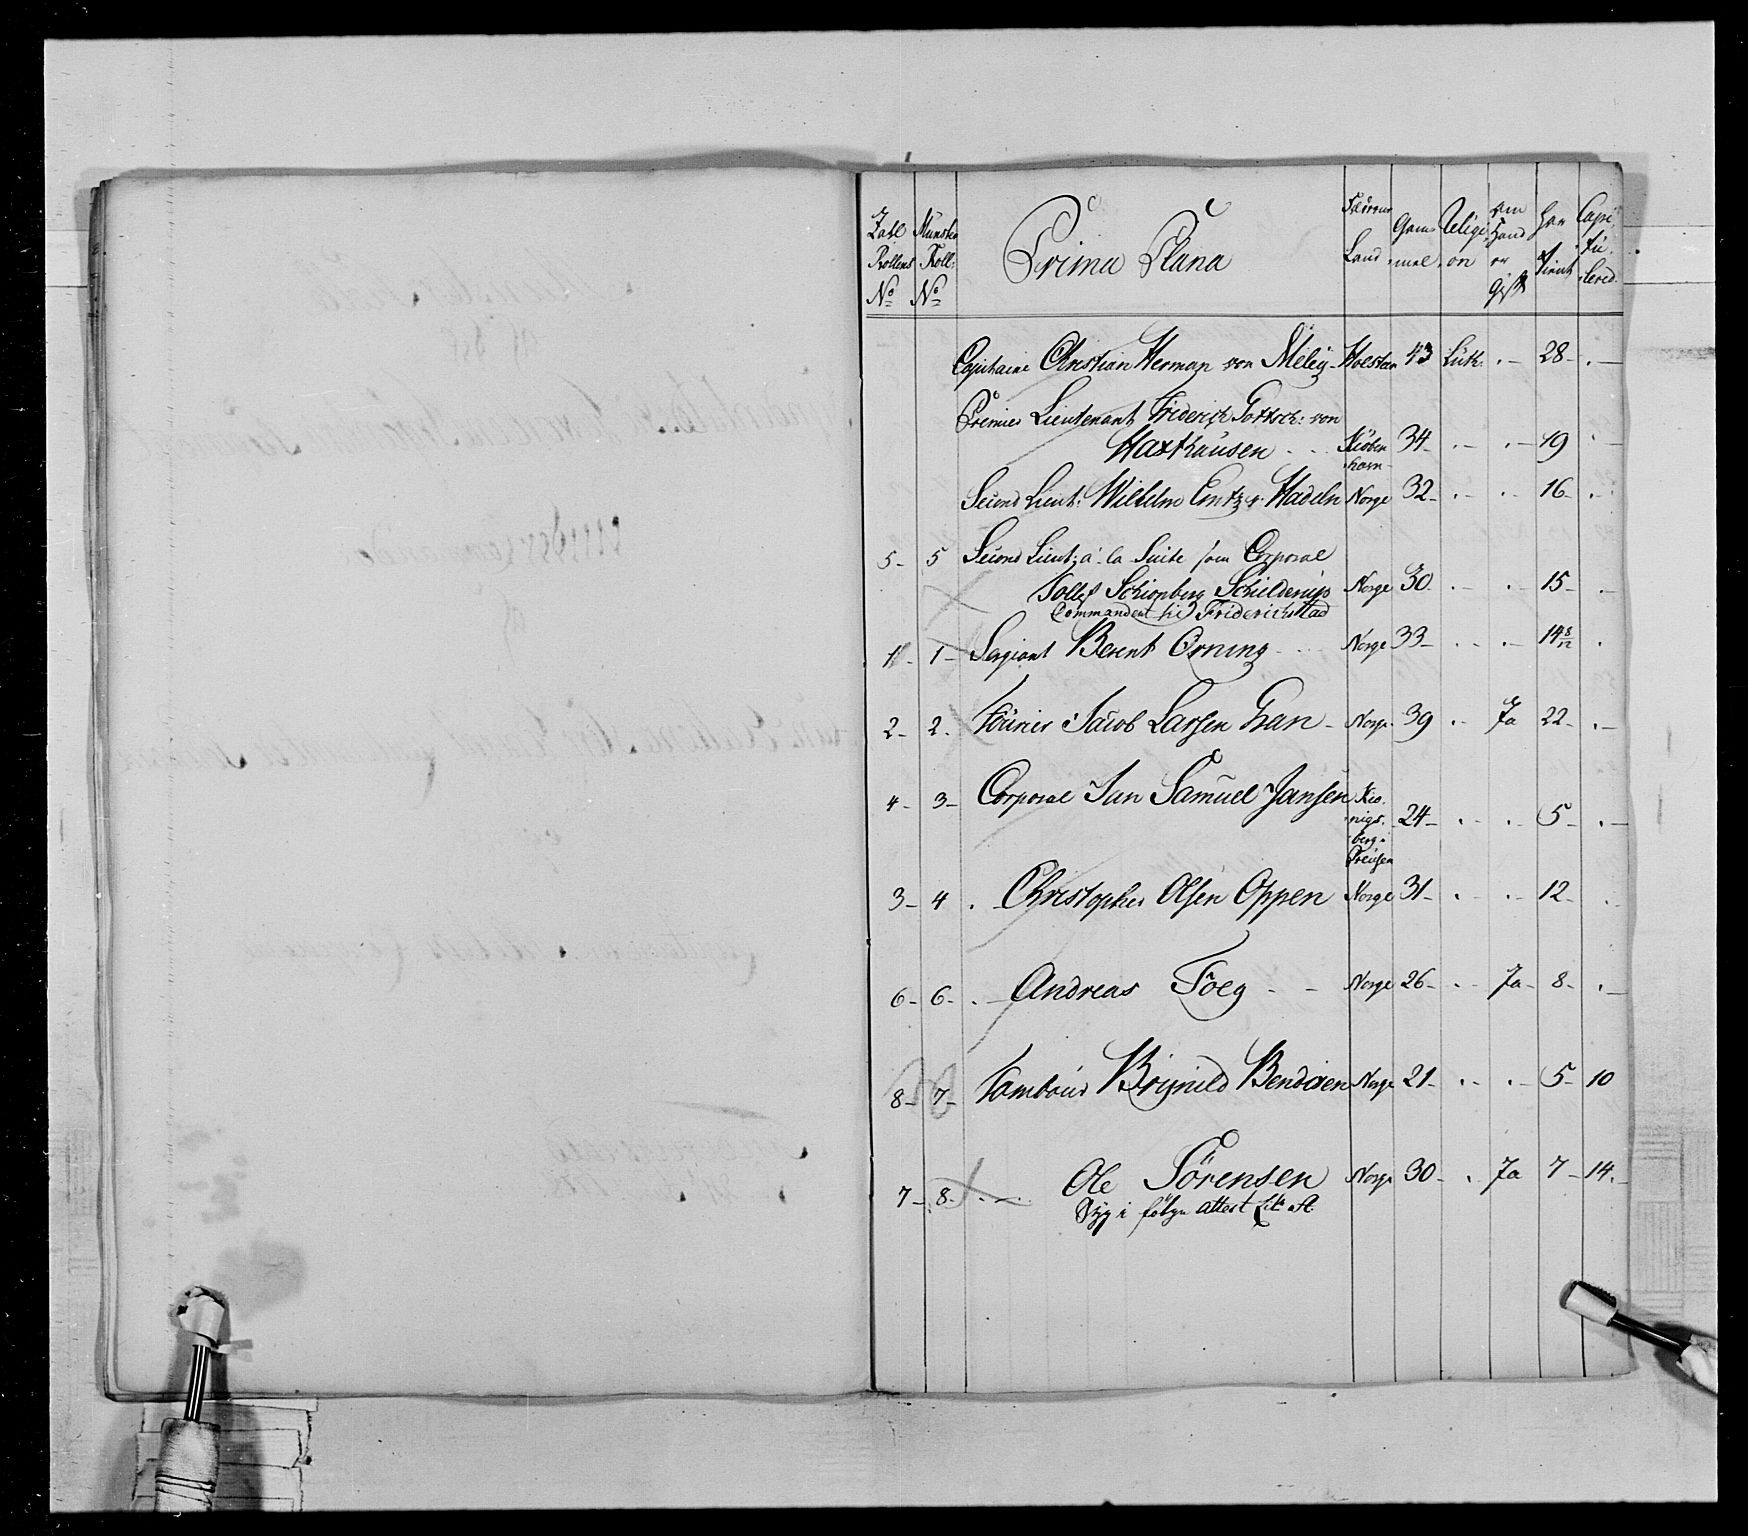 Zahl Rollens No | Munster Roll: No | Prima Plana | Land | Gam- mel | Religi- on | om Hand er Gift | har tient | Capi- tu- lered.
Capitaine Christian Herman von Meley - Holsten 43 Luth. . - 28 - . -
Premier Lieutenant Friderich Gottsch: von
Haxthausen - . . Kiöben- havn - 34 - . - . - 19 . -
Second Lieut: Wilhelm v. Hadeln Norge 32 - . . . . 16 - . .
5 - 5 Second Lieut: à la Suite som Corporal
Tollef Schionberg Norge 30 . . . . 15 - . -
Commandeert til Friderichstad
1 - 1 - Sergiant Berent Orning - . . . Norge 33 - . . . - 14 8/12 .
2 - 2. Fourier Jacob Larsen Gran - Norge 39 . . Ja 22 - . -
4 - 3 - Corporal Jan Samuel Jansen Kio- nigs- berg i Preusen 24 - . . . . 5 - . -
3 - 4 . - Christopher Olsen Oppen Norge 31 - . . . - 12 - . .
6 - 6 - . - Andreas Foeg - - Norge 26 - . . Ja - 8 - . -
8 - 7 - Tambour Brynild Bendixen Norge 21 - . . . - 5 - 10
7 - 8 - . - Ole Sörensen Norge 30 - . Ja 7 - 14 . -
Syg i følge attest Lit: A.